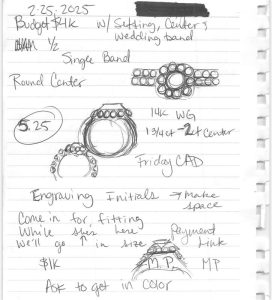 2.25.2025
Budget $4K w/ Setting, Center &
wedding band
1/2
Single Band
Round Center
5.25
14K WG
1 3/4 ct - 2ct Center
Friday CAD
Engraving Initials → Make
space
Come in for fitting
While she's here
We'll go ↑ in size
Payment
Link
$1K
M.P.
MP
Ask to get in color